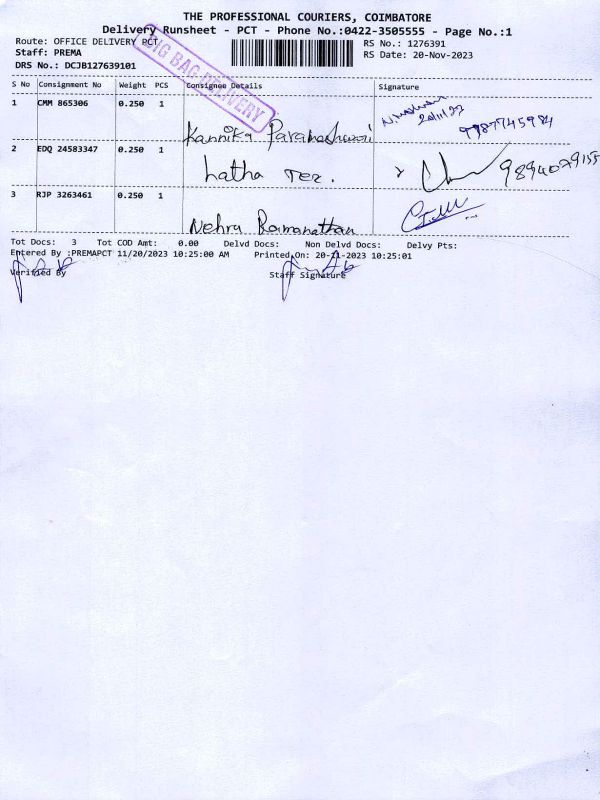 THE PROFESSIONAL COURIERS, COIMBATORE
Delivery Runsheet - PCT - Phone No.:0422-3505555 - Page No.:1
Route: OFFICE DELIVERY PCT
RS No.: 1276391
Staff: PREMA
RS Date: 20-Nov-2023
DRS No.: DCJB127639101
BIG BAG DELIVERY
S No Consignment No Weight PCS Consignee Details Signature
1 CMM 865306 0.250 1
Kannika Parameshwari
20/11/23
9987745984
2 EDQ 24583347 0.250 1
hatha Tex.
9894079155
3 RJP 3263461 0.250 1
Nehru Ramanathan
Tot Docs: 3 Tot COD Amt: 0.00 Delvd Docs: Non Delvd Docs: Delvy Pts:
Entered By :PREMAPCT 11/20/2023 10:25:00 AM Printed On: 20-11-2023 10:25:01
Verified By Staff Signature